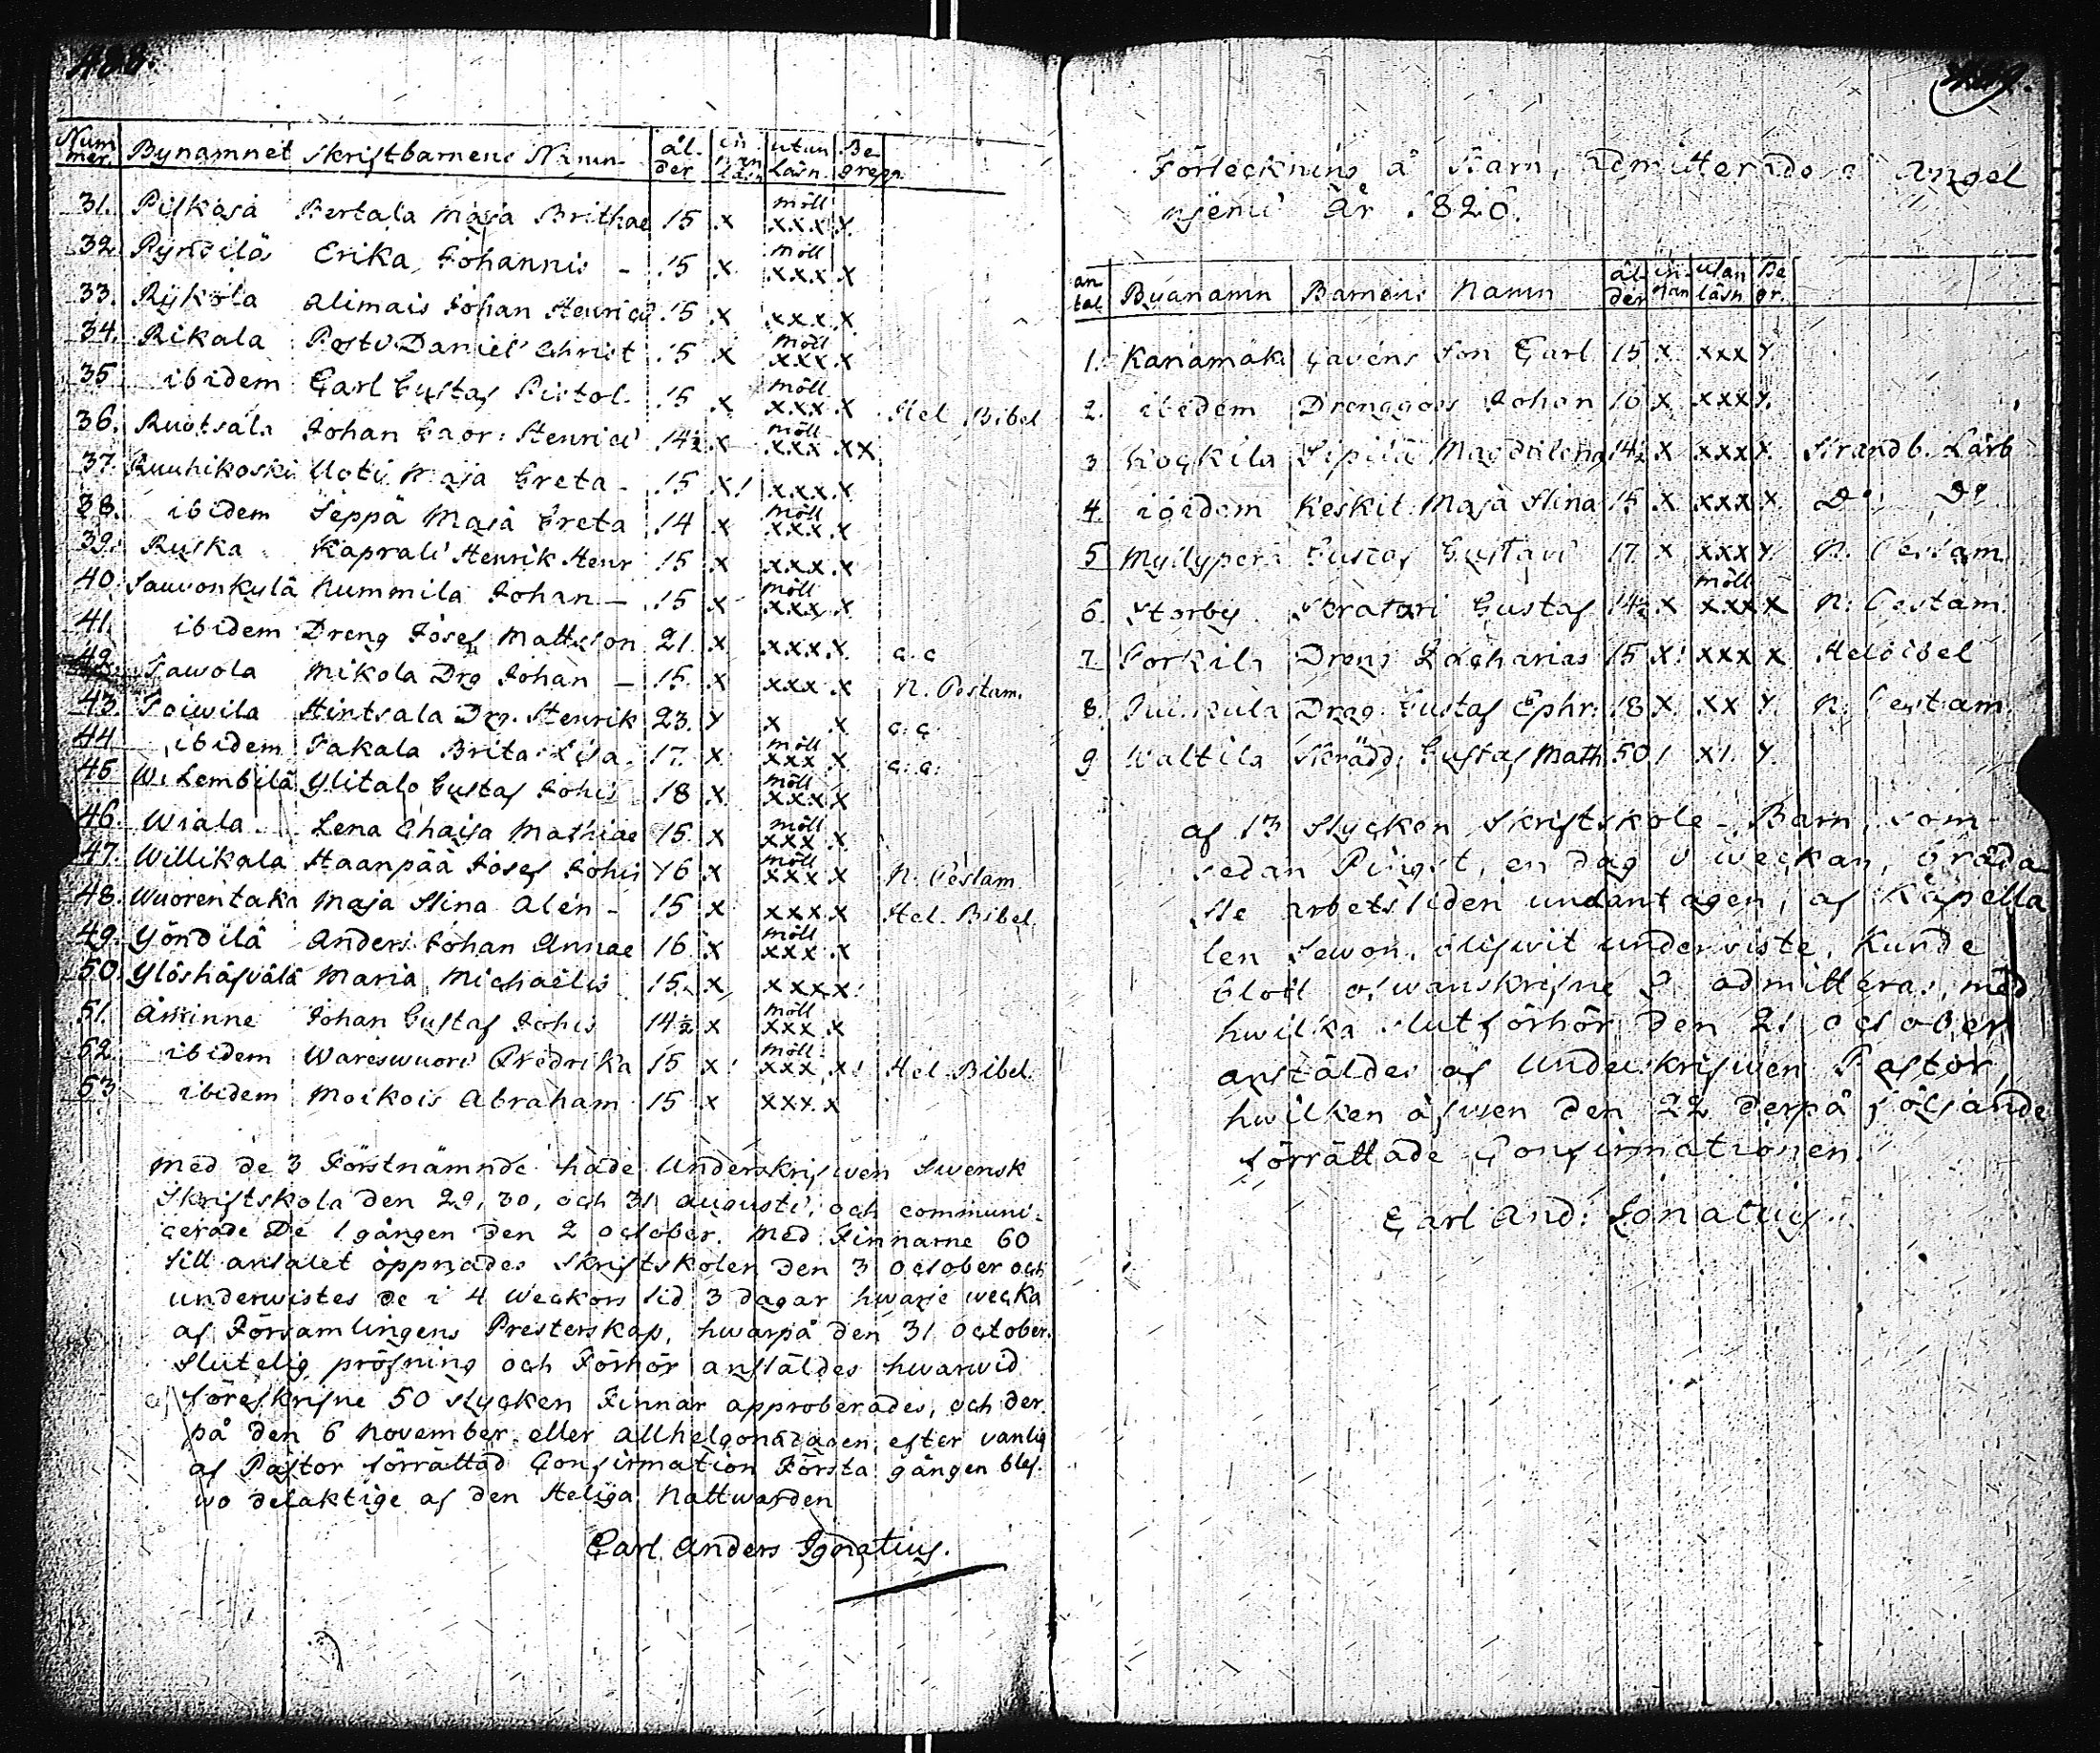 Num mer. Bynamnet Skriftbarnens Namn ål. der in nan läsn utan Läsn. Be grepp.
31. Piskasa Bertala Maja Brithae 15 x möll xxx x.
32. Pyndilä Erika Johannis - 15 x möll xxx x
33. Rÿkola Alimais Johan Henrici 15 x xxx x
34. Rikala Postv Daniel Christ 15 x möll xxx x
35 ibidem Carl Gustaf Pistol. 15 x möll xxx x Hel. Bibel
36. Ruotsala Johan Gabr: Henrici 14½ x möll xxx xx
37. Ruuhikoski Uoti Maja Greta - 15 x! xxx x
38. ibidem Seppä Maja Greta 14 x möll xxx x
39. Ruska Kaprali Henrik Henr 15 x xxx x
40. Sauvonkylä Nummila Johan - 15 x möll xxx x
41. ibidem Dreng Josef Mattsson 21. x xxx x. c. c
42. Tawola Mikola Drg Johan - 15. x xxx x N. Testam.
43. Toiwila Hintsala Drg. Henrik 23. x x x c. c.
44 ibidem Takala Brita Lisa. 17. x möll xxx x c. c.
45 W. Lembilä Ylitalo Gustaf Johis 18 x möll xxx x
46. Wiala Lena Chaisa Mathiae 15. x möll xxx x
47. Willikala Haanpää Josef Johis 16 x möll xxx x N. Testam.
48. Wuorentaka Maja Stina Alén - 15 x xxx x Hel. Bibel.
49. Yöndilä Anders Johan Annae 16 x möll xxx x
50. Ylöshäfvälä Maria Michaëlis 15. x xxx x!
51. Åminne Johan Gustaf Johis 14½ x möll xxx x
52. ibidem Wareswuori Fredrika 15 x! möll xxx x! Hel. Bibel.
53 ibidem Moikois Abraham 15 x xxx. x
Med de 3 Förstnämnde hade Underskrifwen Swensk
Skriftskola den 29, 30, och 31 Augusti, och communi-
cerade De 1 gången den 2 October. Med Finnarne 60
till antalet öppnades Skriftskolen den 3 October och
underwistes de i 4 Weckors tid 3 dagar hwarje wecka
af Församlingens Presterskap, hwarpå den 31 October.
Slutelig pröfning och Förhör anställdes hwarwid
af föreskrifne 50 stycken Finnar approberades, och der
på den 6 November eller Allhelgonadagen, efter vanlig
af Pastor förrättad Confirmation Första gången blef-
wo delaktige af den Heliga Nattwarden
Carl Anders Ignatius.
Förteckning å Barn, admitterade i Angel
njemi År 1820.
an tal Byanamn Barnens Namn ål- der in- nan utan läsn Be gr.
1. Kanamäki Cavéns Son Carl 15 x xxx x
2. ibidem Drenggoss Johan 16 x xxx x.
3 Kockila Sipilä Magdalena 14½ x xxx x. Strandb. Lärb
4. ibidem Keskit. Maja Stina 15 x xxx x Do. Do
5 Myllyperä Gustaf Gustavi 17 x xxx x. N. Testam.
6. Storby Skratari Gustaf 14½ x möll xxx x N. Testam.
7 Torkila Dreng Zacharias 15 x! xxx x Helbibel
8. Drag. Gustaf Ephr. 18 x xx x. N. Testam.
9 Waltila Skrädd. Gustaf Math 50 / x1. x.
af 13 stycken Skriftskole-Barn, som
sedan Pingst, en dag i weckan, bråda
ste arbetstiden undantagen, af Kapella
len Sewon, blifwit underwiste, Kunde
blott ofwanskrifne 9 admitteras, med
hwilka slutförhör den 21 October
anställdes af Underskrifwen Pastor,
hwilken äfwen den 22 derpå följande
förrättade Confirmationen.
Carl And: Ignatius.